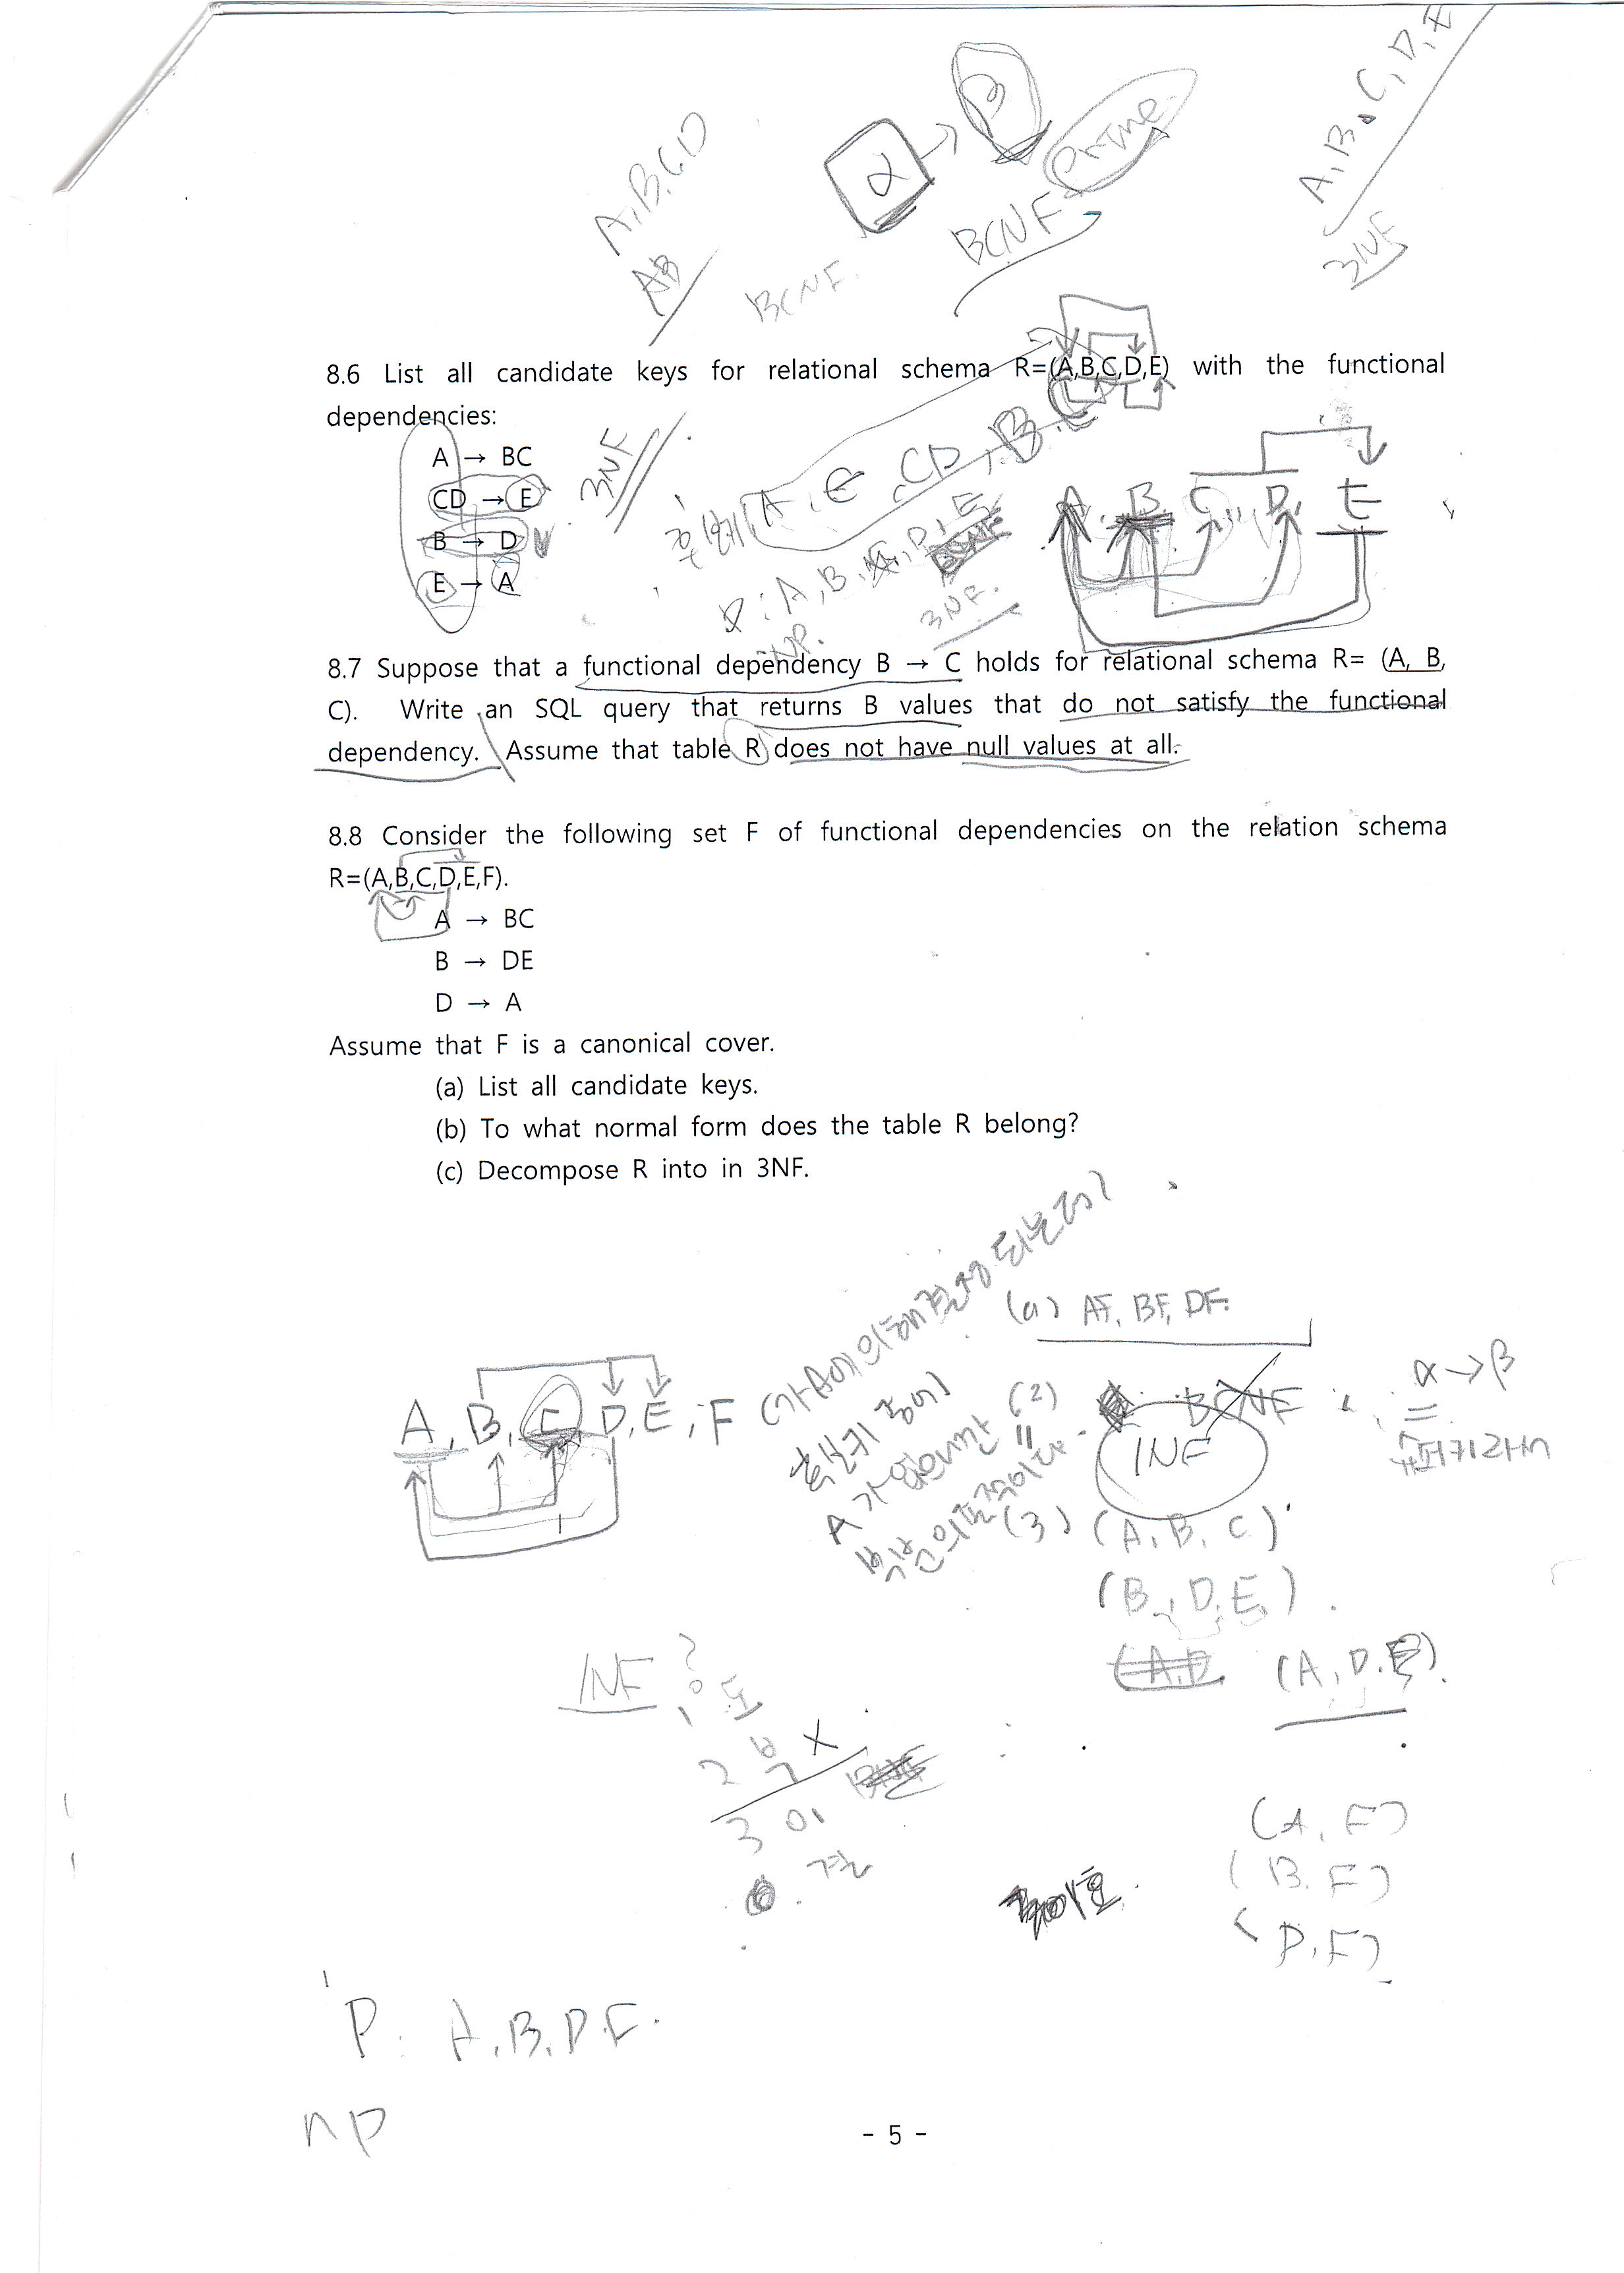 A,B,C,D
AB
α → β
prime
BCNF
BCNF.
A,B,C,D,E
3NF
8.6 List all candidate keys for relational schema R=(A,B,C,D,E) with the functional
dependencies:
A → BC
CD → E
B → D
E → A
3NF
후보키 A, E, CD, B.C
A, B, C, D, E
3NF.
NP.
8.7 Suppose that a functional dependency B → C holds for relational schema R= (A, B,
C). Write an SQL query that returns B values that do not satisfy the functional
dependency. Assume that table R does not have null values at all.
8.8 Consider the following set F of functional dependencies on the relation schema
R=(A,B,C,D,E,F).
A → BC
B → DE
D → A
Assume that F is a canonical cover.
(a) List all candidate keys.
(b) To what normal form does the table R belong?
(c) Decompose R into in 3NF.
(a) AF, BF, DF.
A, B, C, D, E, F
후보키 중에
(2) BCNF
1NF
α → β
(3) (A, B, C)
(B, D, E)
(A,D (A, D, E).
1NF ?
1 도
2 부 X
3 이
(A, F)
(B, F)
(D, F)
P: A, B, D, F.
np
- 5 -